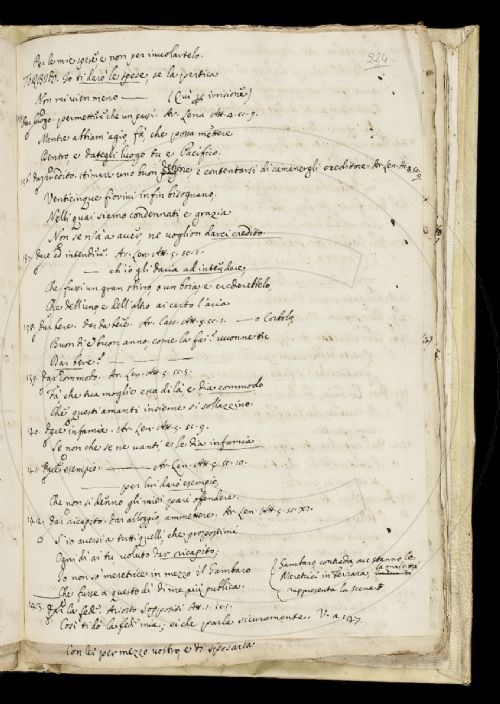 224
Per le mie spese e non per involartelo.
Io ti darò le spese, se la pertica
Non mi vien meno — (Qui irrisione)
luogo. permettere che un passi. Ar. Lena Att. 4. sc. 9.
Mentre abbiam agio fà, che possa mettere
Dentro e dategli luogo tu e Pacifico.
credito. stimare uno buon e contentarsi di rimanergli creditore. Ar. Len. At. 4. sc. 9
Venticinque fiorini infin bisognano,
Nelli quai siamo condennati e grazia
Non se n'hà a aver, ne voglion darci credito.
137. dare ad intendere. Ar. Len. Att. 5. sc. 1.
— ch'io gli dava ad intendere
Che fussi un gran e crederettelo,
Che dell'uno e dell'altro
138. dar bere. dar da bere. Ar. Cass. Att. 5. sc. 1. — o Corbolo
Buon dì e buon anno, come la fai?
Dar bere? —
139. dar commodo. Ar. Len. Att. 5. sc. 5.
Fà, che tua moglie esca di là, e dia commodo
Che questi amanti insieme si sollazzino.
40. dare infamia. Ar. Len. Att. 5. sc. 9.
Se non che se ne vanti e le dia infamia
41. dare esempio. — Ar. Len. Att. 5. sc. 10.
— per lui darò esempio,
Che non si denno gli miei pari offendere.
142. dar ricapito. dar alloggio ammettere. Ar. Len. Att. 5. sc. XI.
S'io avessi a tutti quelli, che propostimi
Ogni dì ai tu voluto dar ricapito,
Io non so meretrice in mezzo il Gambaro
Che fusse a questo dì di me più publica.
Gambaro contrada ove stanno le
Meretrici in Ferrara, la qual
rappresenta la scena
143. dar la fede. Ariosto Suppositi Att. 1. sc. 1.
Così ti do la fede mia; sì che parla sicuramente. V. a 147.
Con lei per mezzo vostro, e di sposarla